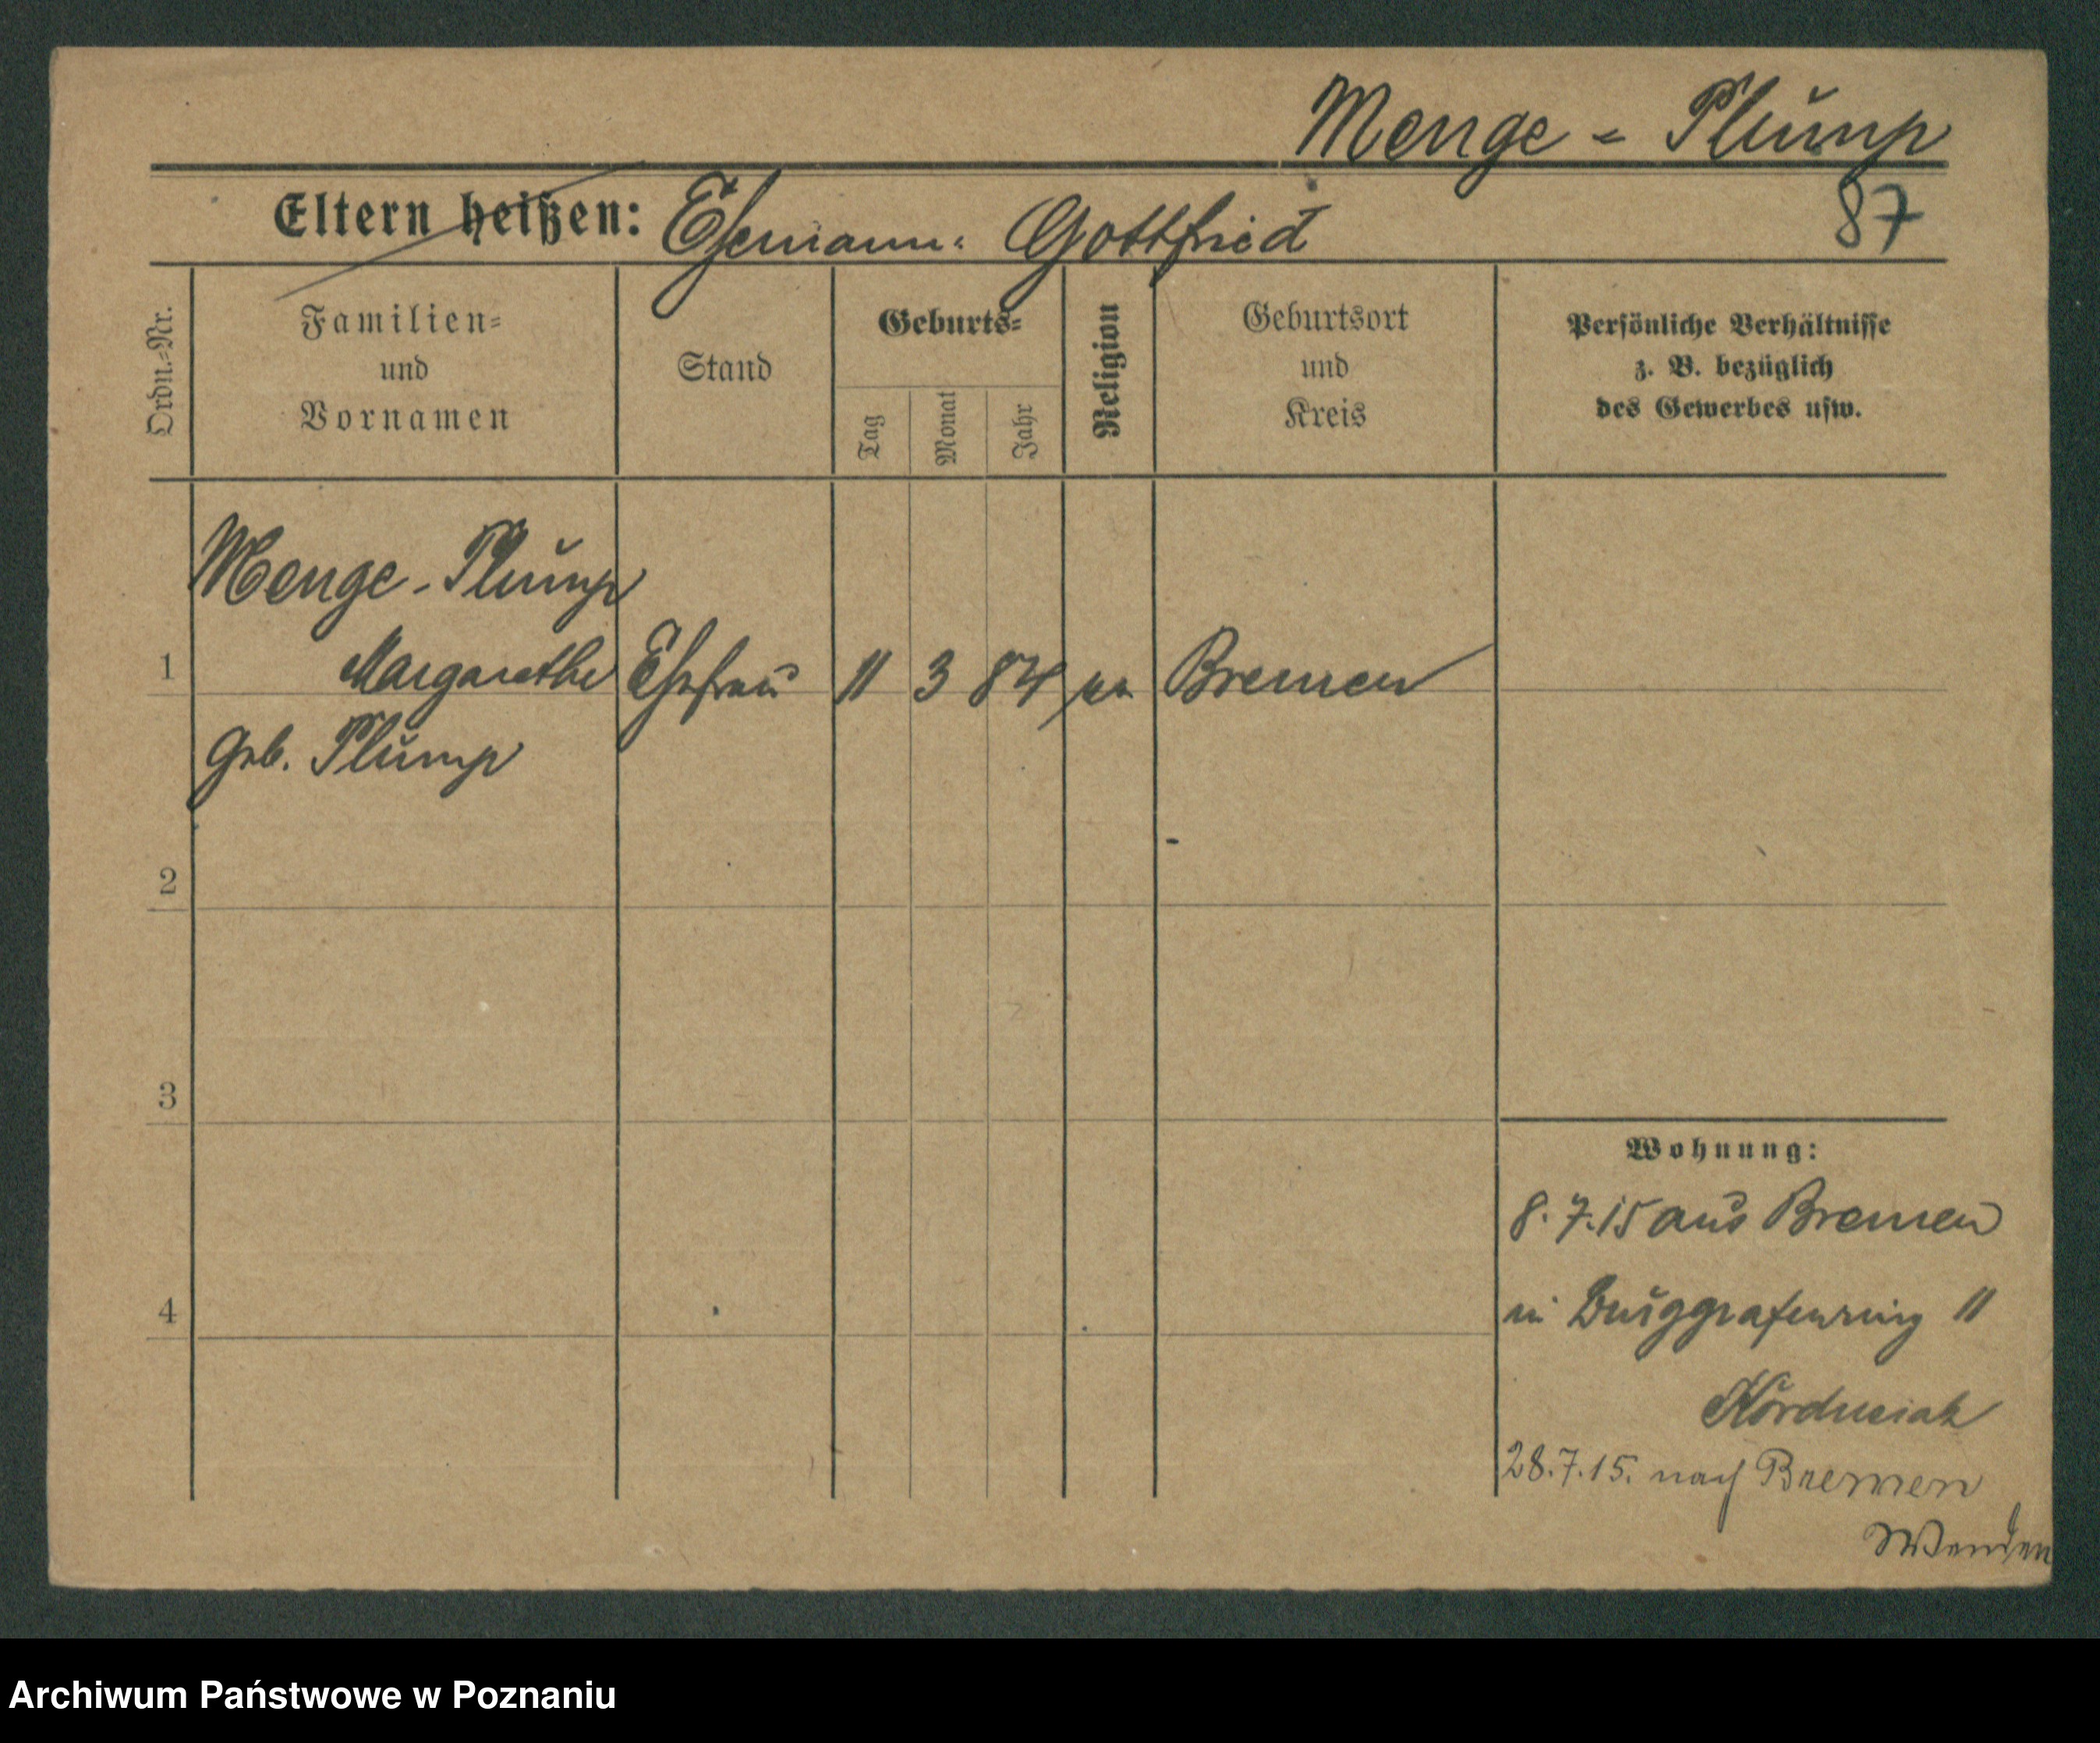 Menge - Plump
Eltern heißen: Ehemann: Gottfried
87
Ordn.-Nr.
Familien-
und
Vornamen
Stand
Geburts-
Tag
Monat
Jahr
Religion
Geburtsort
und
Kreis
Persönliche Verhältnisse
z. B. bezüglich
des Gewerbes usw.
Menge-Plump
1 Margarethe Ehefrau 11 3 84 Bremen
Geb. Plump
2
3
4
Wohnung:
8.7.15 aus Bremen
in Burggrafenring 11
28.7.15. nach Bremen